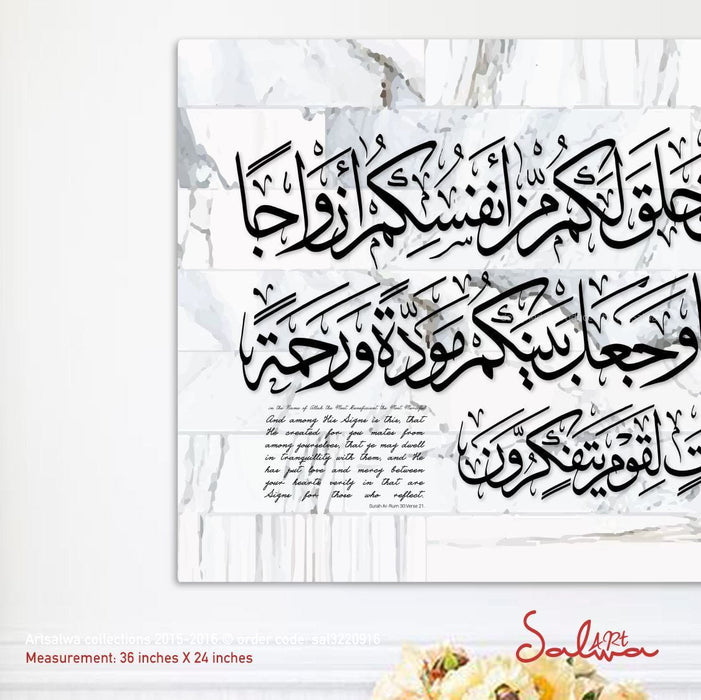 خلق لكم من أنفسكم أزواجًا
وجعل بينكم مودّةً ورحمةً
لقوم يتفكّرون
in the Name of Allah the Most Beneficent the Most Merciful
And among His Signs is this, that
He created for you mates from
among yourselves, that ye may dwell
in tranquillity with them, and He
has put love and mercy between
your hearts verily in that are
Signs for those who reflect.
Surah Ar-Rum 30:Verse 21.
Artsalwa collections 2015-2016 © order code: sal3220916
Measurement: 36 inches X 24 inches
Salwa ARt